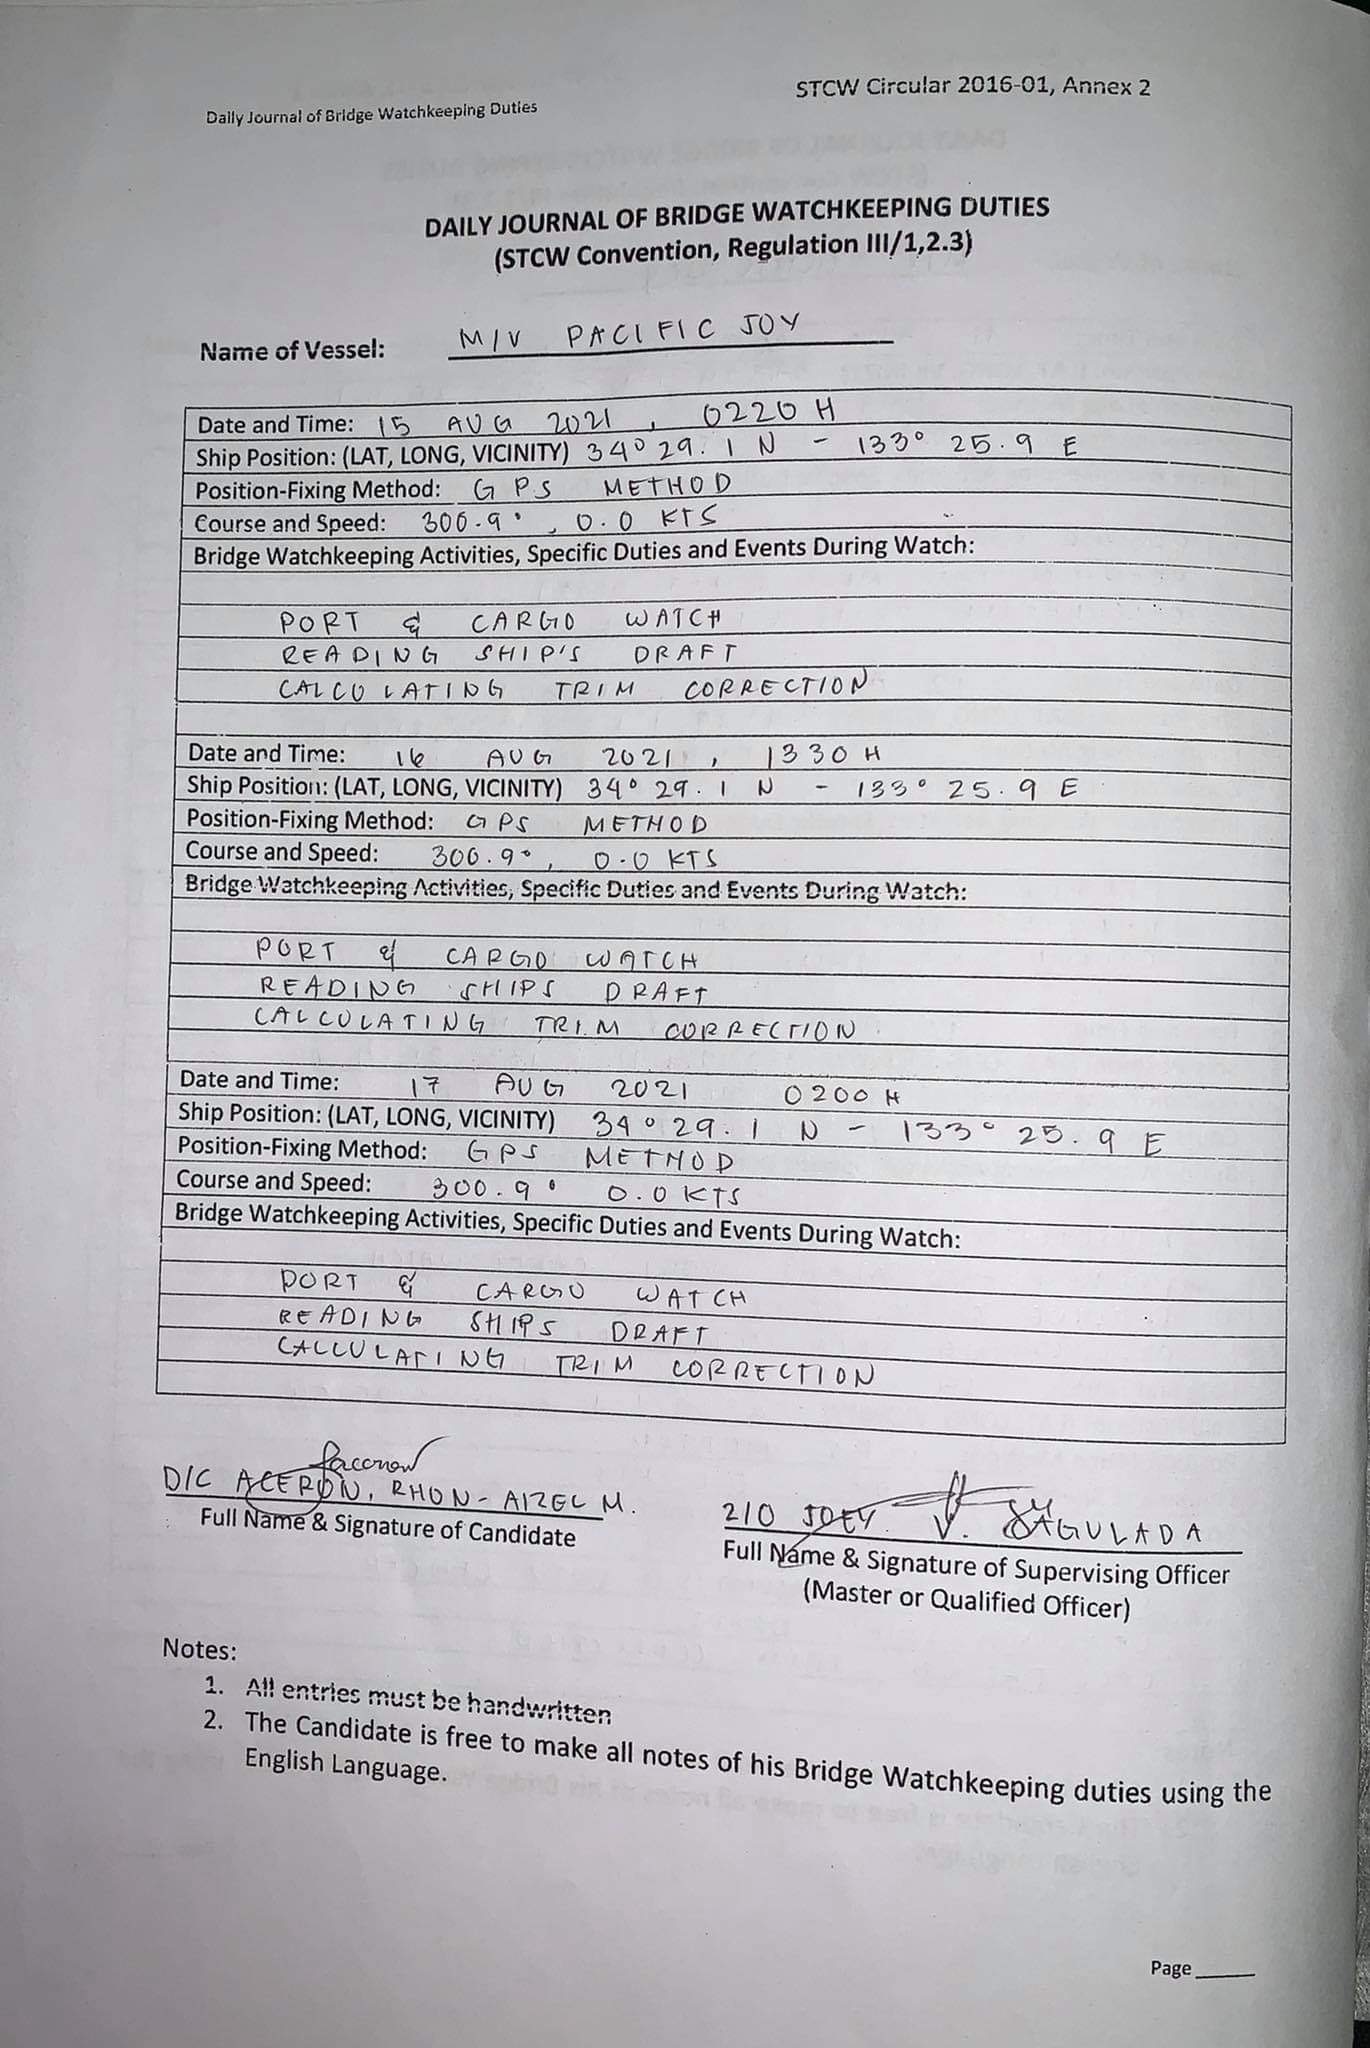 STCW Circular 2016-01, Annex 2
Daily Journal of Bridge Watchkeeping Duties
DAILY JOURNAL OF BRIDGE WATCHKEEPING DUTIES
(STCW Convention, Regulation III/1,2.3)
Name of Vessel: M/V PACIFIC JOY
Date and Time: 15 AUG 2021, 0220 H
Ship Position: (LAT, LONG, VICINITY) 34° 29.1 N - 133° 25.9 E
Position-Fixing Method: GPS METHOD
Course and Speed: 300.9°, 0.0 KTS
Bridge Watchkeeping Activities, Specific Duties and Events During Watch:
PORT & CARGO WATCH
READING SHIP'S DRAFT
CALCULATING TRIM CORRECTION
Date and Time: 16 AUG 2021, 1330 H
Ship Position: (LAT, LONG, VICINITY) 34° 29.1 N - 133° 25.9 E
Position-Fixing Method: GPS METHOD
Course and Speed: 300.9°, 0.0 KTS
Bridge Watchkeeping Activities, Specific Duties and Events During Watch:
PORT & CARGO WATCH
READING SHIPS DRAFT
CALCULATING TRIM CORRECTION
Date and Time: 17 AUG 2021 0200 H
Ship Position: (LAT, LONG, VICINITY) 34° 29.1 N - 133° 25.9 E
Position-Fixing Method: GPS METHOD
Course and Speed: 300.9° 0.0 KTS
Bridge Watchkeeping Activities, Specific Duties and Events During Watch:
PORT & CARGO WATCH
READING SHIPS DRAFT
CALCULATING TRIM CORRECTION
D/C ACERON, RHON-AIZEL M.
Full Name & Signature of Candidate
2/O JOEY V. SAGULADA
Full Name & Signature of Supervising Officer
(Master or Qualified Officer)
Notes:
1. All entries must be handwritten
2. The Candidate is free to make all notes of his Bridge Watchkeeping duties using the
English Language.
Page